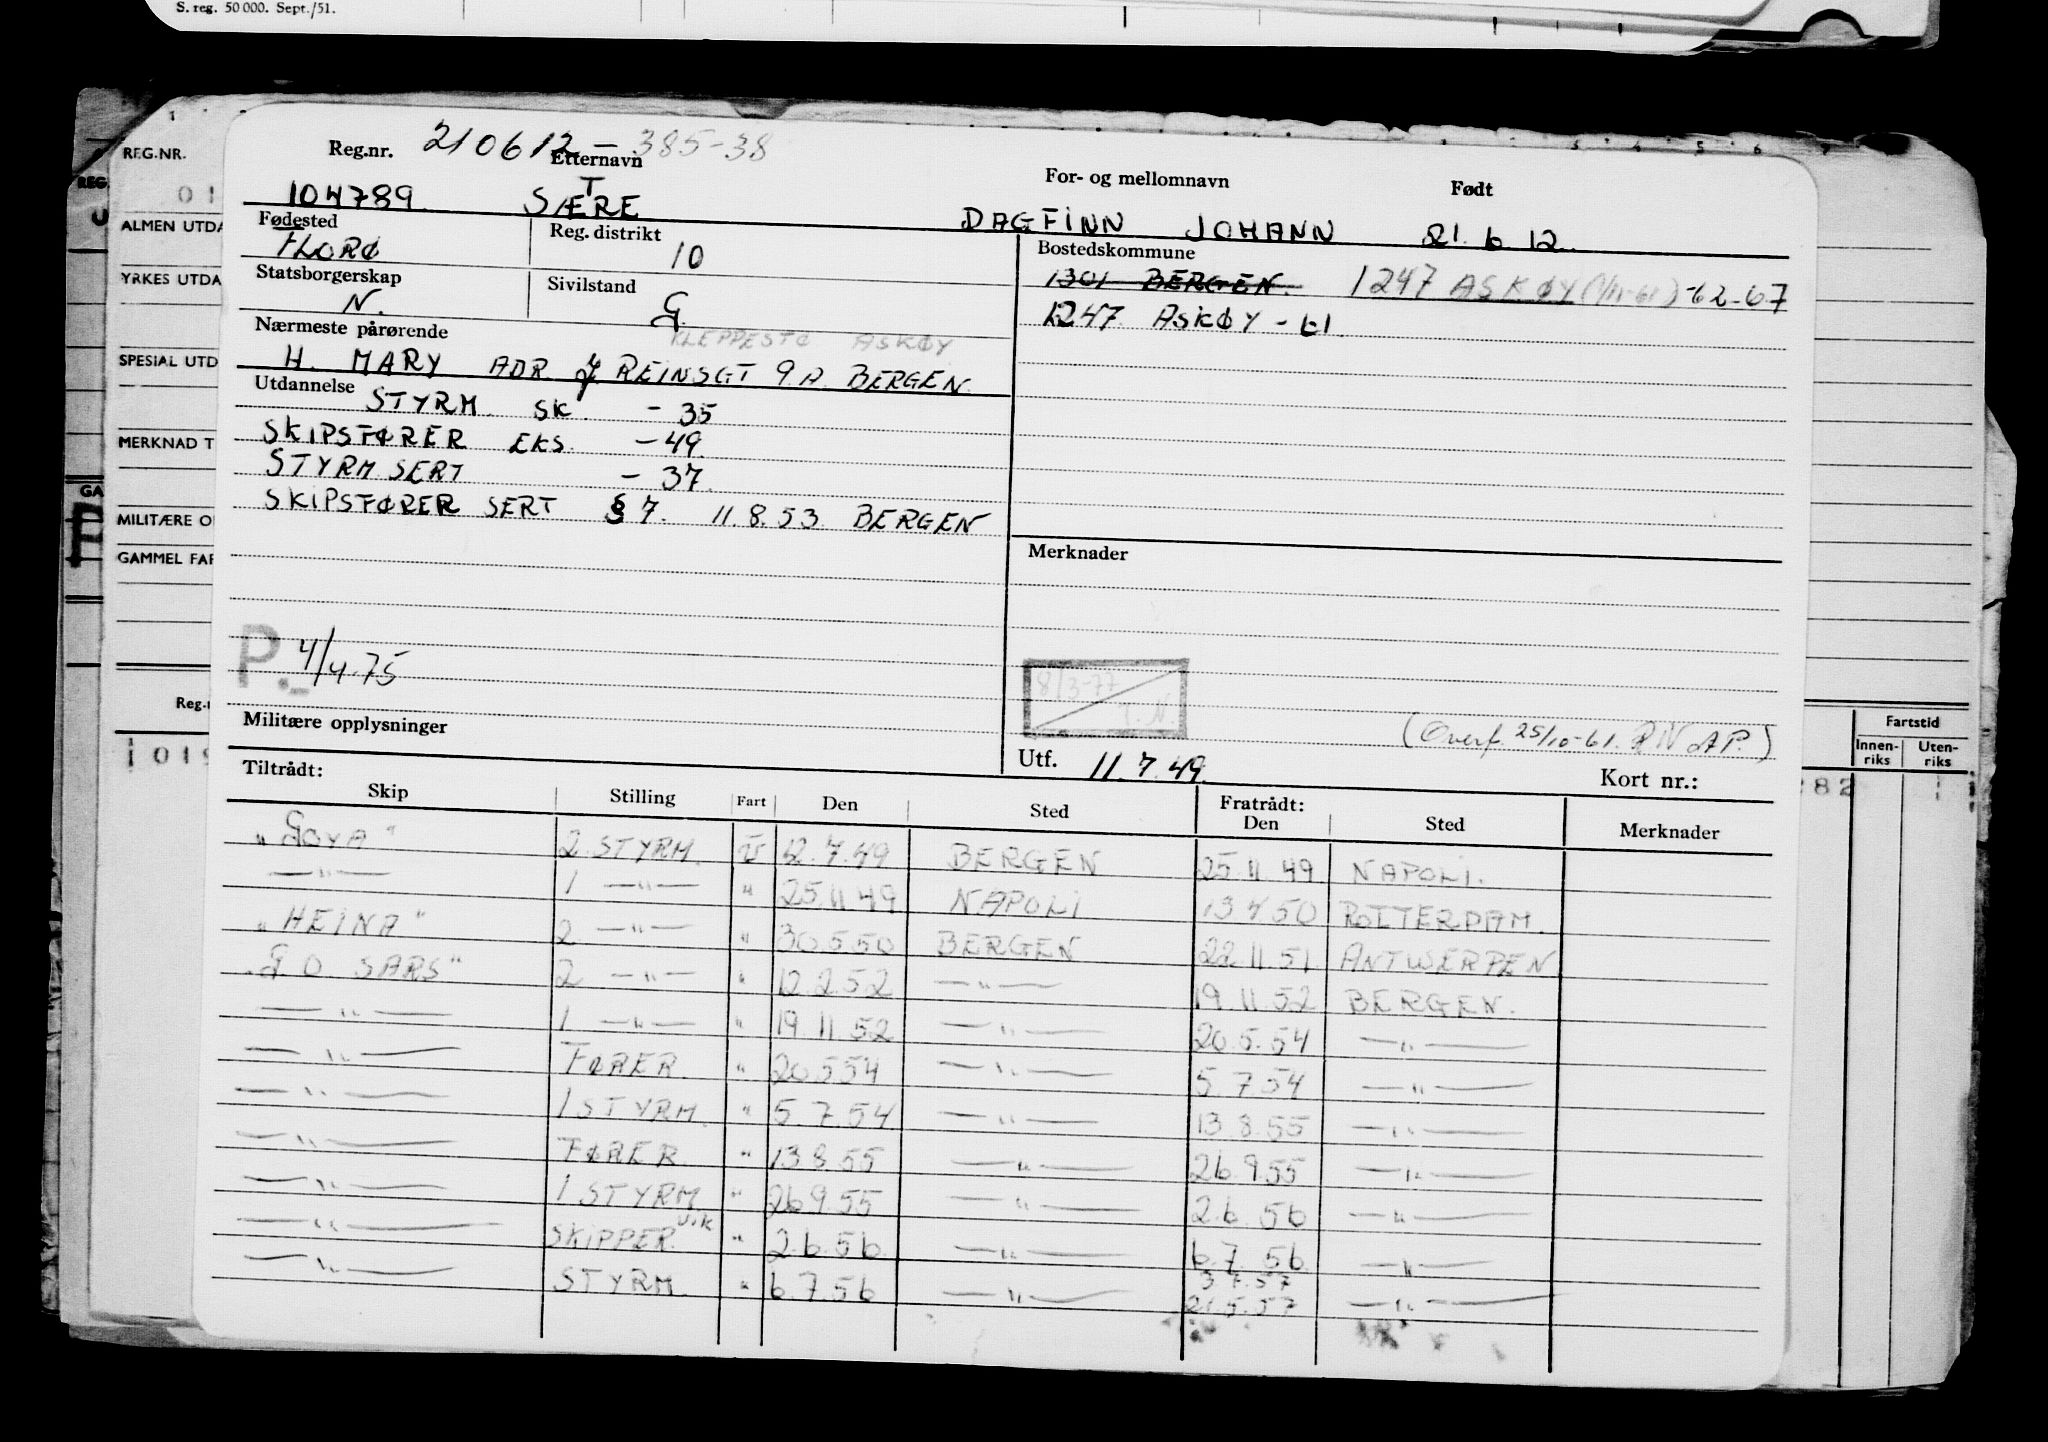 S. reg. 50 000. Sept./51.
REG.NR.
ALMEN UTDA
YRKES UTDA
SPESIAL UTD
MERKNAD T
MILITÆRE O
GAMMEL FAR
Reg.nr. 210612 - 385-38
Etternavn For- og mellomnavn Født
104789 SÆTRE DAGFINN JOHANN 21. 6 12.
Fødested Reg. distrikt Bostedskommune
FLORØ 10 1301 BERGEN. 1247 ASKØY (1/11-61) -62-67
Statsborgerskap Sivilstand 1247 ASKØY - 61
N. G.
Nærmeste pårørende KLEPPESTØ ASKØY
H. MARY ADR J REINSGT 9.A. BERGEN.
Utdannelse STYRM. SK. - 35
SKIPSFØRER EKS. - 49.
STYRM SERT - 37.
SKIPSFØRER SERT § 7. 11.8.53 BERGEN
Merknader
P. 4/4-75
8/3-77
T.N.
Militære opplysninger
(Overf. 25/10-61. RN AP.)
Utf. 11.7.49. Kort nr.:
Fartstid
Innen-riks Uten-riks
Tiltrådt: Fratrådt:
Skip Stilling Fart Den Sted Den Sted Merknader
"GOYA" 2. STYRM. U 12.7.49 BERGEN 25.11.49 NAPOLI.
—"— 1 —"— " 25.11.49 NAPOLI 13.4.50 ROTTERDAM.
"HEINA" 2 —"— " 30.5.50 BERGEN 22.11.51 ANTWERPEN
"G.O. SARS" 2 —"— " 12.2.52 —"— 19.11.52 BERGEN.
—"— 1 —"— " 19.11.52 —"— 20.5.54 —"—
—"— FØRER. " 20.5.54 —"— 5.7.54 —"—
—"— 1 STYRM. " 5.7.54 —"— 13.8.55 —"—
—"— FØRER " 13.8.55 —"— 26.9.55 —"—
—"— 1 STYRM " 26.9.55 —"— 2.6.56 —"—
—"— SKIPPER. VIK " 2.6.56 —"— 6.7.56 —"—
—"— STYRM. " 6.7.56 —"— 21.5.57 —"—